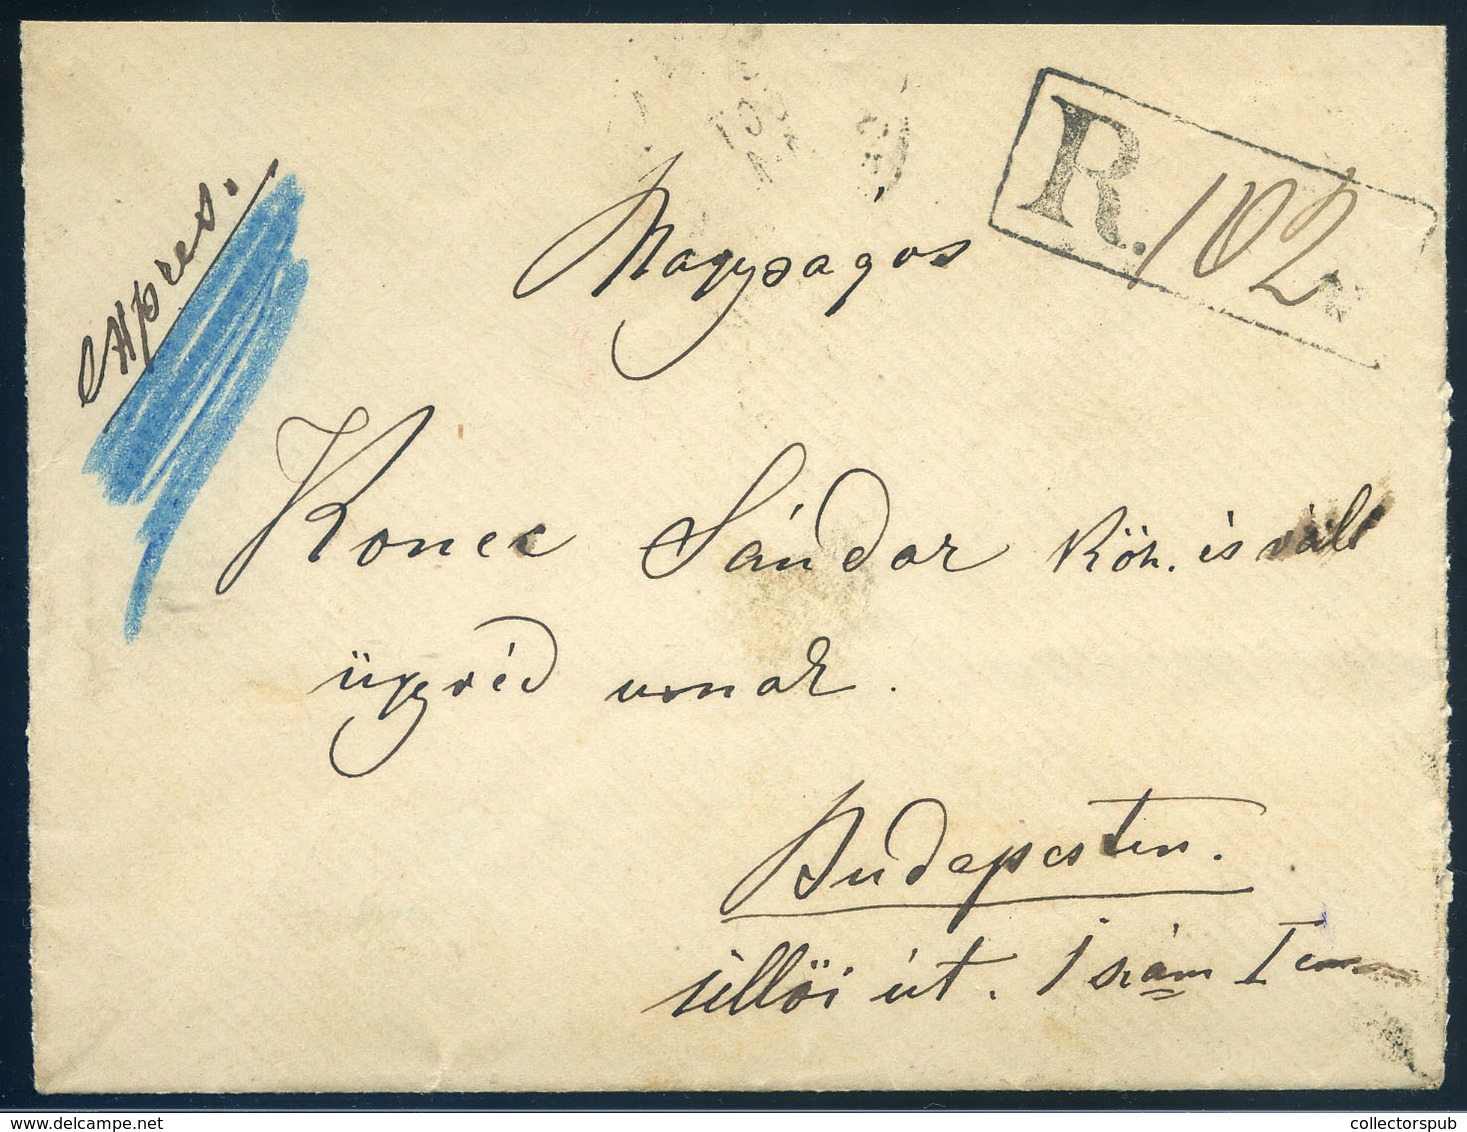 expres.
R. 102
Nagyságos
Konec Sándor Köh. és vált
ügyvéd urnak.
Budapesten.
üllöi út. 1 szám I em.
collectorspub